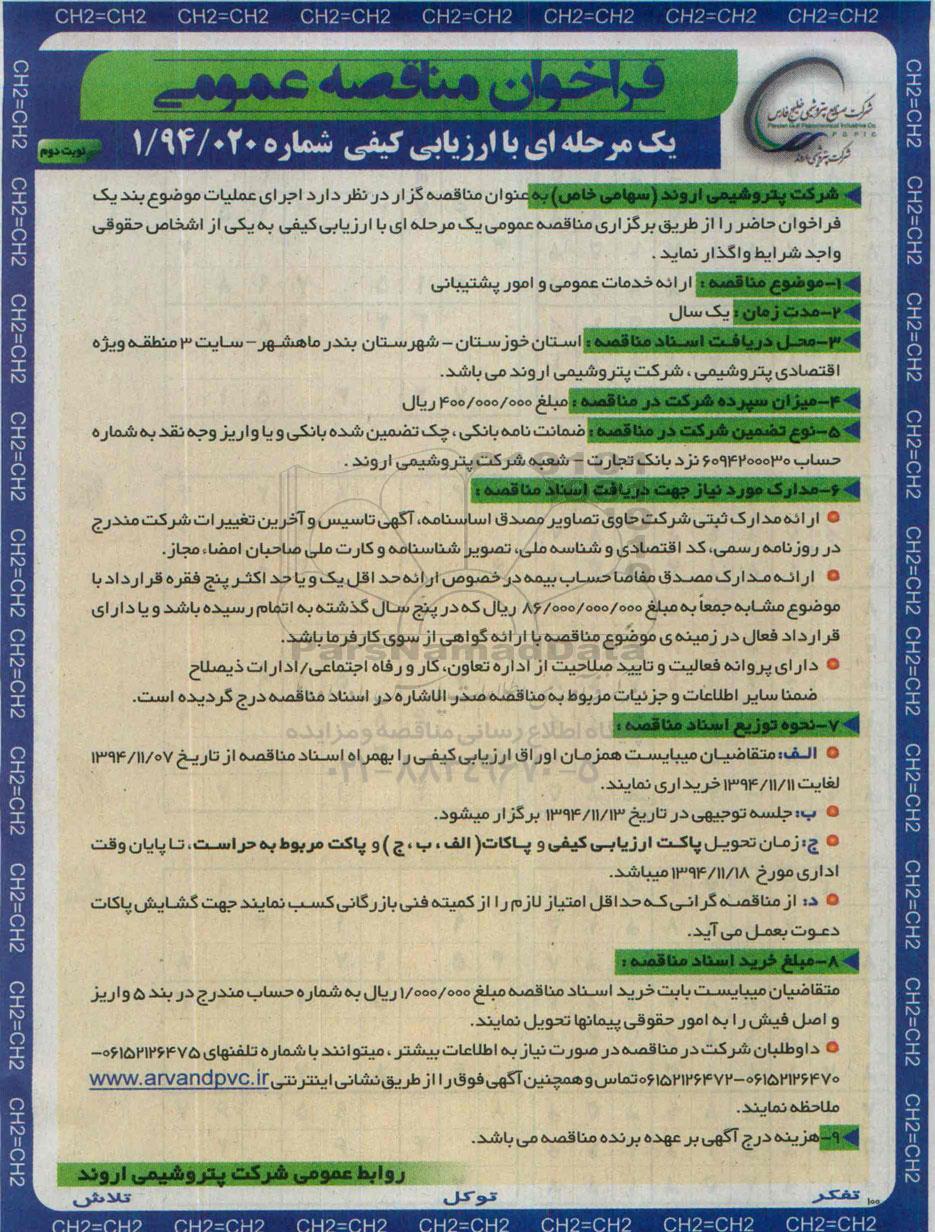 CH2=CH2 CH2=CH2 CH2=CH2 CH2=CH2 CH2=CH2 CH2=CH2 CH2=CH2
فراخوان مناقصه عمومی
شرکت صنایع پتروشیمی خلیج فارس
Persian Gulf Petrochemical Industries Co
P G P I C
شرکت پتروشیمی اروند
یک مرحله ای با ارزیابی کیفی شماره ۱/۹۴/۰۲۰
نوبت دوم
شرکت پتروشیمی اروند (سهامی خاص) به عنوان مناقصه گزار در نظر دارد اجرای عملیات موضوع بند یک
فراخوان حاضر را از طریق برگزاری مناقصه عمومی یک مرحله ای با ارزیابی کیفی به یکی از اشخاص حقوقی
واجد شرایط واگذار نماید .
۱-موضوع مناقصه : ارائه خدمات عمومی و امور پشتیبانی
۲-مدت زمان : یک سال
۳-محل دریافت اسناد مناقصه : استان خوزستان - شهرستان بندر ماهشهر - سایت ۳ منطقه ویژه
اقتصادی پتروشیمی ، شرکت پتروشیمی اروند می باشد.
۴-میزان سپرده شرکت در مناقصه : مبلغ ۴۰۰/۰۰۰/۰۰۰ ریال
۵-نوع تضمین شرکت در مناقصه : ضمانت نامه بانکی ، چک تضمین شده بانکی و یا واریز وجه نقد به شماره
حساب ۶۰۹۴۲۰۰۰۳۰ نزد بانک تجارت - شعبه شرکت پتروشیمی اروند .
۶-مدارک مورد نیاز جهت دریافت اسناد مناقصه :
ارائه مدارک ثبتی شرکت حاوی تصاویر مصدق اساسنامه، آگهی تاسیس و آخرین تغییرات شرکت مندرج
در روزنامه رسمی، کد اقتصادی و شناسه ملی، تصویر شناسنامه و کارت ملی صاحبان امضاء مجاز.
ارائه مدارک مصدق مفاصا حساب بیمه در خصوص ارائه حد اقل یک و یا حد اکثر پنج فقره قرارداد با
موضوع مشابه جمعاً به مبلغ ۸۶/۰۰۰/۰۰۰/۰۰۰ ریال که در پنج سال گذشته به اتمام رسیده باشد و یا دارای
قرارداد فعال در زمینه ی موضوع مناقصه با ارائه گواهی از سوی کارفرما باشد.
ParsNamadData
دارای پروانه فعالیت و تایید صلاحیت از اداره تعاون، کار و رفاه اجتماعی/ادارات ذیصلاح
ضمنا سایر اطلاعات و جزئیات مربوط به مناقصه صدر الاشاره در اسناد مناقصه درج گردیده است.
۷-نحوه توزیع اسناد مناقصه :
اطلاع رسانی مناقصه و مزایده
الف: متقاضیان میبایست همزمان اوراق ارزیابی کیفی را بهمراه اسناد مناقصه از تاریخ ۱۳۹۴/۱۱/۰۷
۰۲۱-۸۸۳۴۹۶۷۰-۵
لغایت ۱۳۹۴/۱۱/۱۱ خریداری نمایند.
ب: جلسه توجیهی در تاریخ ۱۳۹۴/۱۱/۱۳ برگزار میشود.
ج: زمان تحویل پاکت ارزیابی کیفی و پاکات( الف ، ب ، ج ) و پاکت مربوط به حراست، تا پایان وقت
اداری مورخ ۱۳۹۴/۱۱/۱۸ میباشد.
د: از مناقصه گرانی که حداقل امتیاز لازم را از کمیته فنی بازرگانی کسب نمایند جهت گشایش پاکات
دعوت بعمل می آید.
۸-مبلغ خرید اسناد مناقصه :
متقاضیان میبایست بابت خرید اسناد مناقصه مبلغ ۱/۰۰۰/۰۰۰ ریال به شماره حساب مندرج در بند ۵ واریز
و اصل فیش را به امور حقوقی پیمانها تحویل نمایند.
داوطلبان شرکت در مناقصه در صورت نیاز به اطلاعات بیشتر ، میتوانند با شماره تلفنهای ۰۶۱۵۲۱۲۶۴۷۵-
۰۶۱۵۲۱۲۶۴۷۰-۰۶۱۵۲۱۲۶۴۷۲ تماس و همچنین آگهی فوق را از طریق نشانی اینترنتی www.arvandpvc.ir
ملاحظه نمایند.
۹-هزینه درج آگهی بر عهده برنده مناقصه می باشد.
روابط عمومی شرکت پتروشیمی اروند
تفکر توکل تلاش
۱۰۰
CH2=CH2 CH2=CH2 CH2=CH2 CH2=CH2 CH2=CH2 CH2=CH2 CH2=CH2